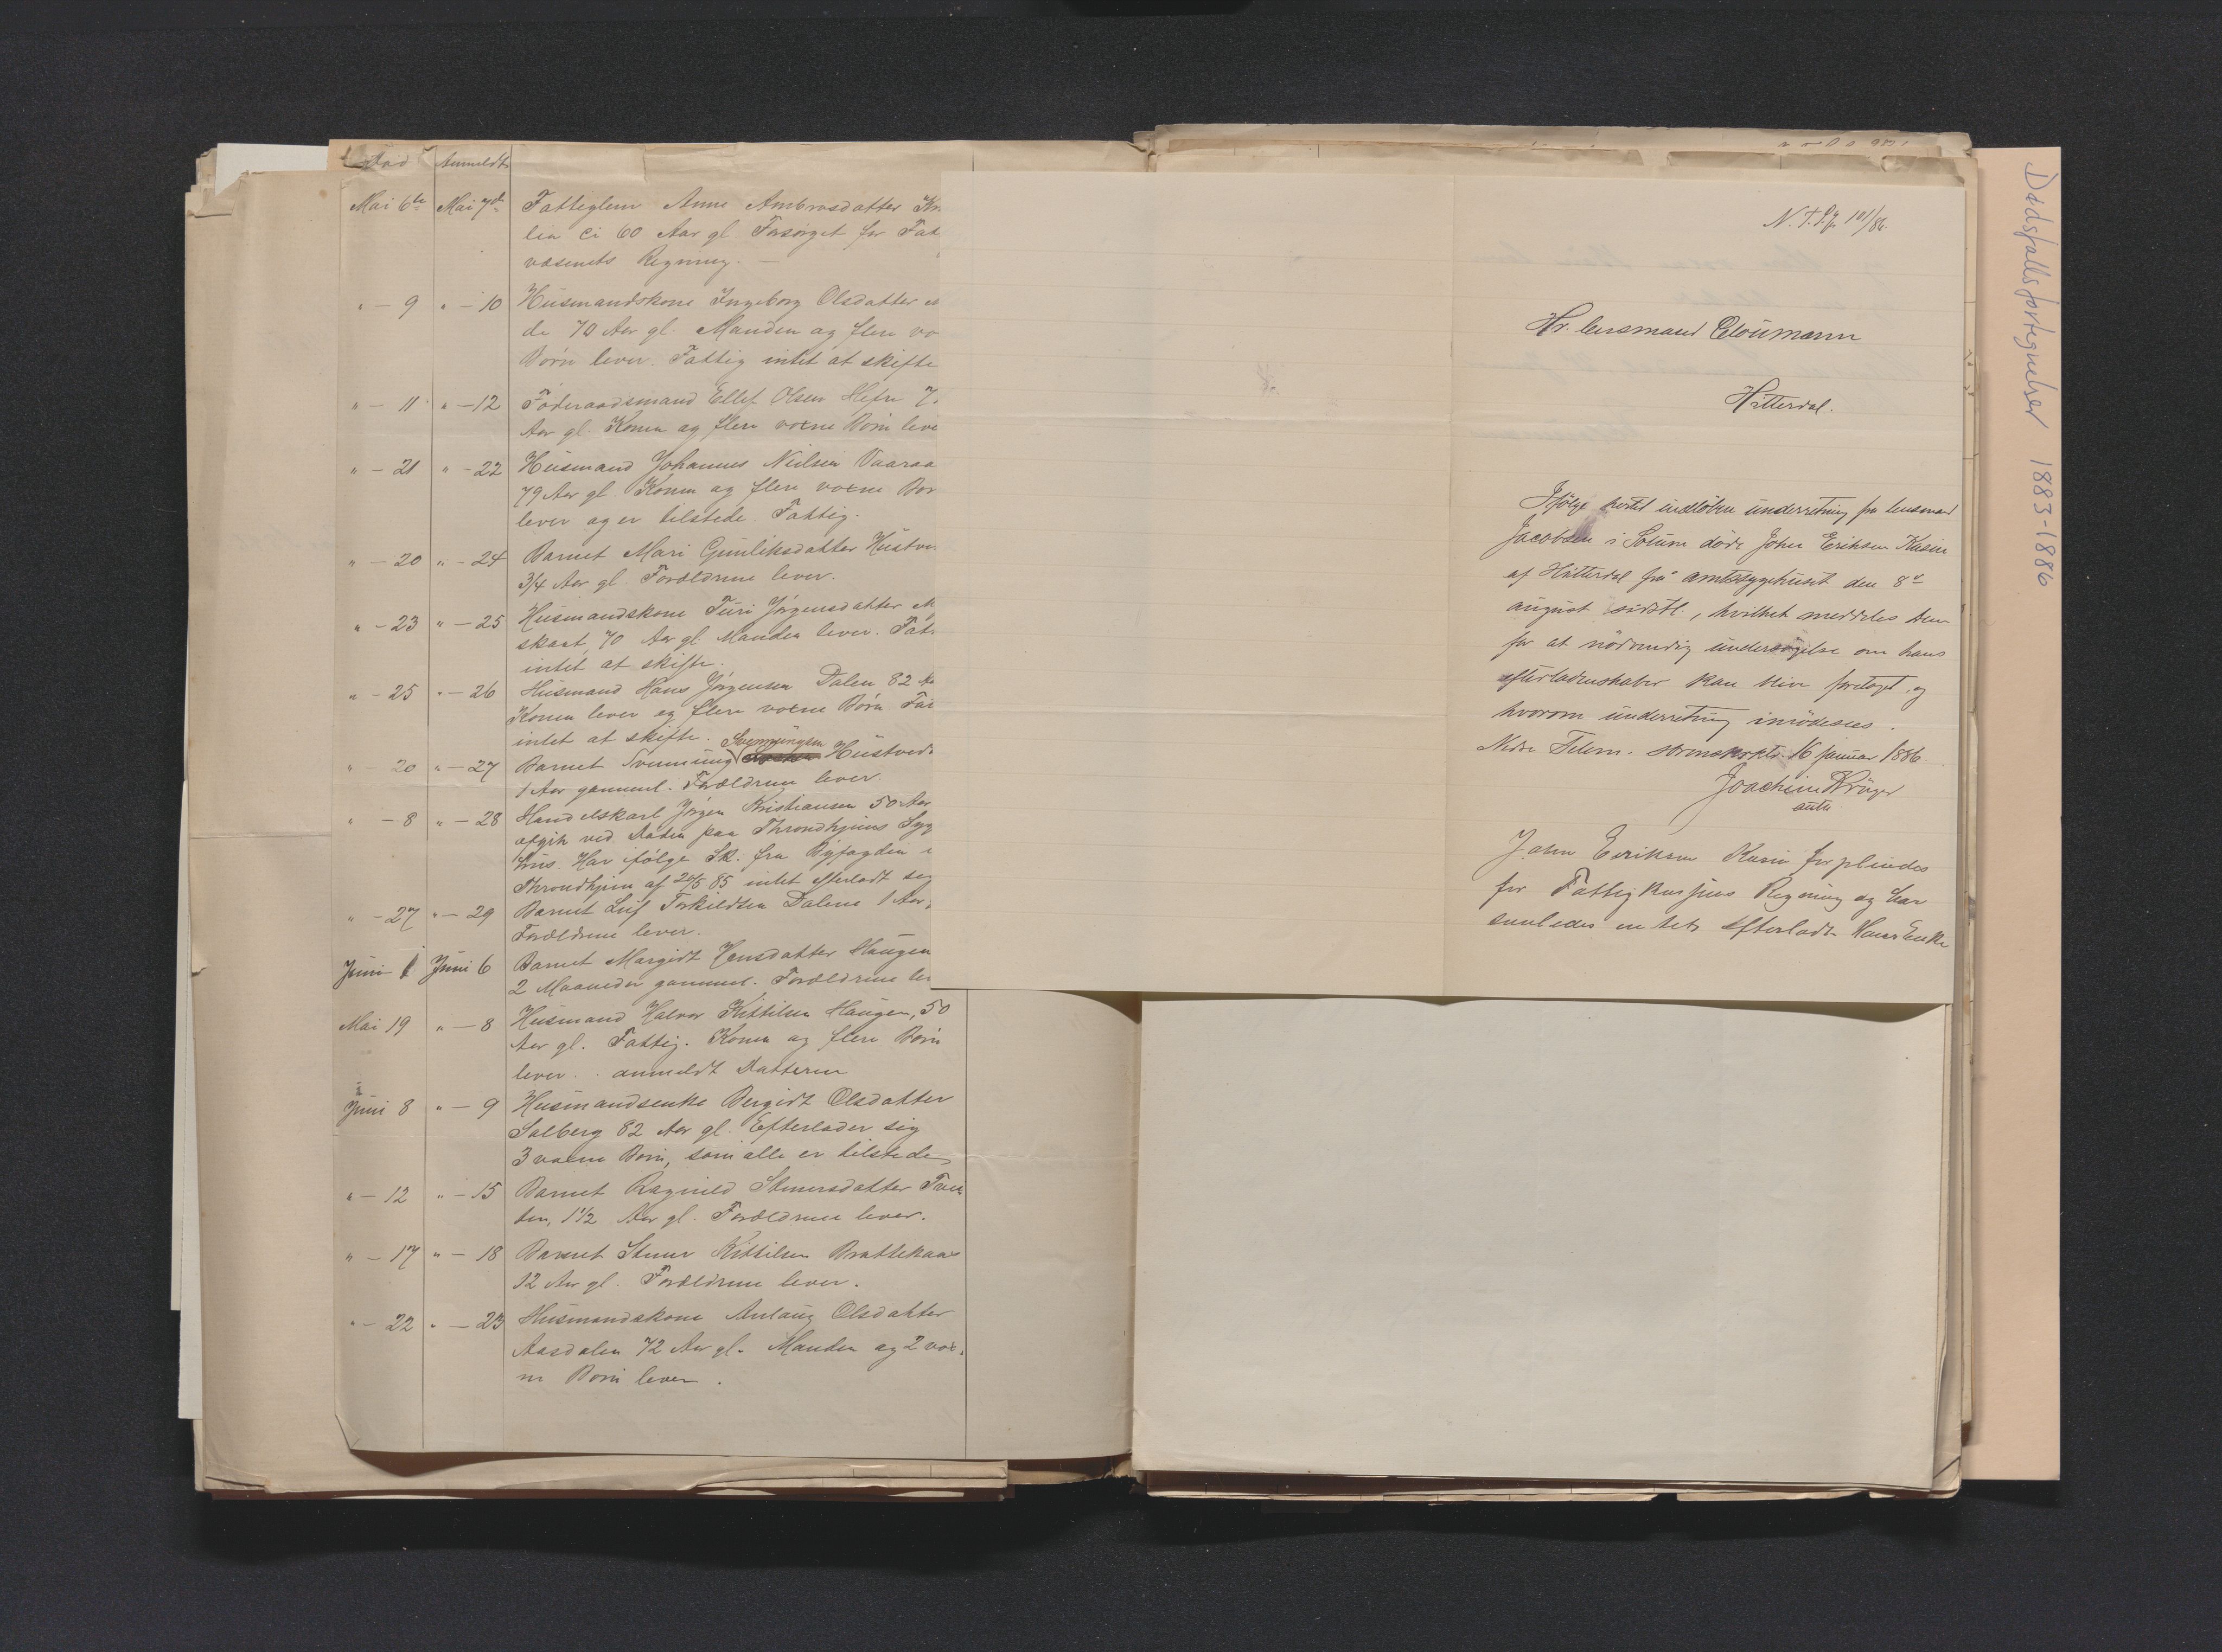 Død Anmeldt
Mai 6te Mai 7de Fattiglem Anne Ambrosdatter
lia Ci 60 Aar gl Forsørget for Fat
væsenets Regning. —
" — 9 " — 10 Husmandskone Ingeborg Olsdatter
de 70 Aar gl. Manden og flere vo
Børn lever. Fattig intet at skifte
" — 11 " — 12 Føderaadsmand Ellef Olsen Hefre 7
Aar gl. Konen og flere voxne Børn leve
" — 21 " — 22 Husmand Johannes Nielsen Vaaraa
79 Aar gl. Konen og flere voxne Bør
lever og er tilstede. Fattig.
" — 20 " — 24 Barnet Mari Gunliksdatter Hustve
3/4 Aar gl. Forældrene lever.
" — 23 " — 25 Husmandskone Turi Jørgensdatter M
skaat, 70 Aar gl. Manden lever. Fat
intet at skifte.
" — 25 " — 26 Husmand Hans Jørgensen Dalen 82 Aa
Konen lever og flere voxne Børn Fat
intet at skifte.
Svenungsen
" — 20 " — 27 Barnet Svenung Hustved
1 Aar gammel. Forældrene lever.
" — 8 " — 28 Handelskarl Jørgen Kristiansen 50 Aar
afgik ved Døden paa Throndhjems Syg
hus. Har ifølge Sk. fra Byfogden i
Throndhjem af 20/5 85 intet efterladt sig
" — 27 " — 29 Barnet Leif Torkildsen Dalene 1 Aar
Forældrene lever.
Juni 1 Juni 6 Barnet Margit Hansdatter Haugen
2 Maaneder gammel. Forældrene lev
Mai 19 " — 8 Husmand Halvor Kittilsen Haugen, 50
Aar gl. Fattig. Konen og flere Børn
lever. anmeldt Datteren
Juni 8 " — 9 Husmandsenke Bergit Olsdatter
Solberg 82 Aar gl. Efterlader sig
3 voxne Børn, som alle er tilstede
" — 12 " — 15 Barnet Ragnild Steinersdatter
ten, 1 1/2 Aar gl. Forældrene lever.
" — 17 " — 18 Barnet Kittilsen Brattekaas
12 Aar gl. Forældrene lever.
" — 22 " — 23 Husmandskone Anlaug Olsdatter
Aasdalen 72 Aar gl. Manden og 2 vox
ne Børn lever.
N. T. 101/86.
Hr. lensmand Cloumann
Hitterdal.
Ifølge hertil indløben underretning fra lensmand
Jacobsen i Solum døde John Eriksen Kasin
af Hitterdal på amtssygehuset den 8de
august sidstl., hvilket meddeles Dem
for at nødvendig undersøgelse om hans
efterladenskaber kan blive foretaget, og
hvorom underretning imødesees.
Nedre Telem. sorenskrkt. 16 januar 1886.
Joachim Krüger
auth.
John Eriksen Kasin forpleiedes
for Fattigkassens Regning og har
saaledes intet efterladt. Hans Enke
Dødsfallsfortegnelser 1883-1886